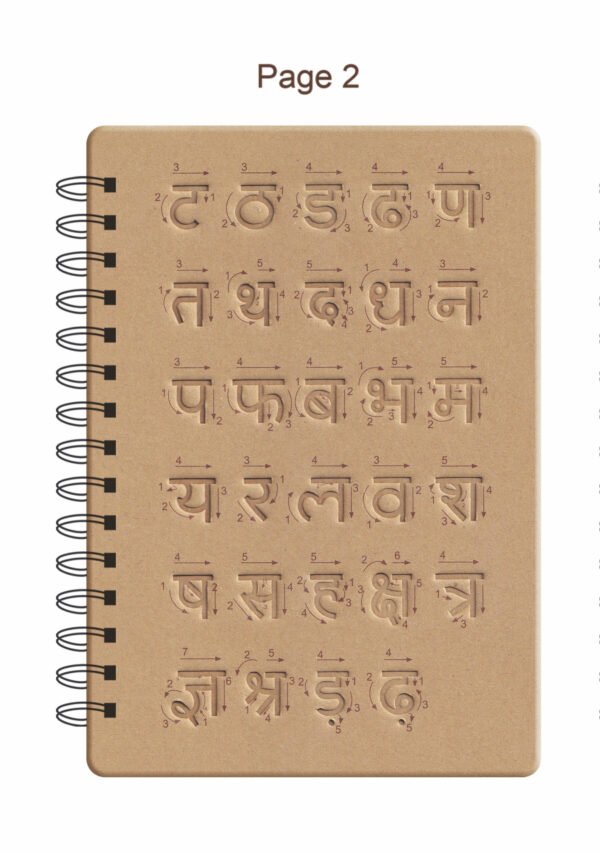 Page 2
ट ठ ड ढ ण
त थ द ध न
प फ ब भ म
य र ल व श
ष स ह क्ष त्र
ज्ञ श्र ड़ ढ़